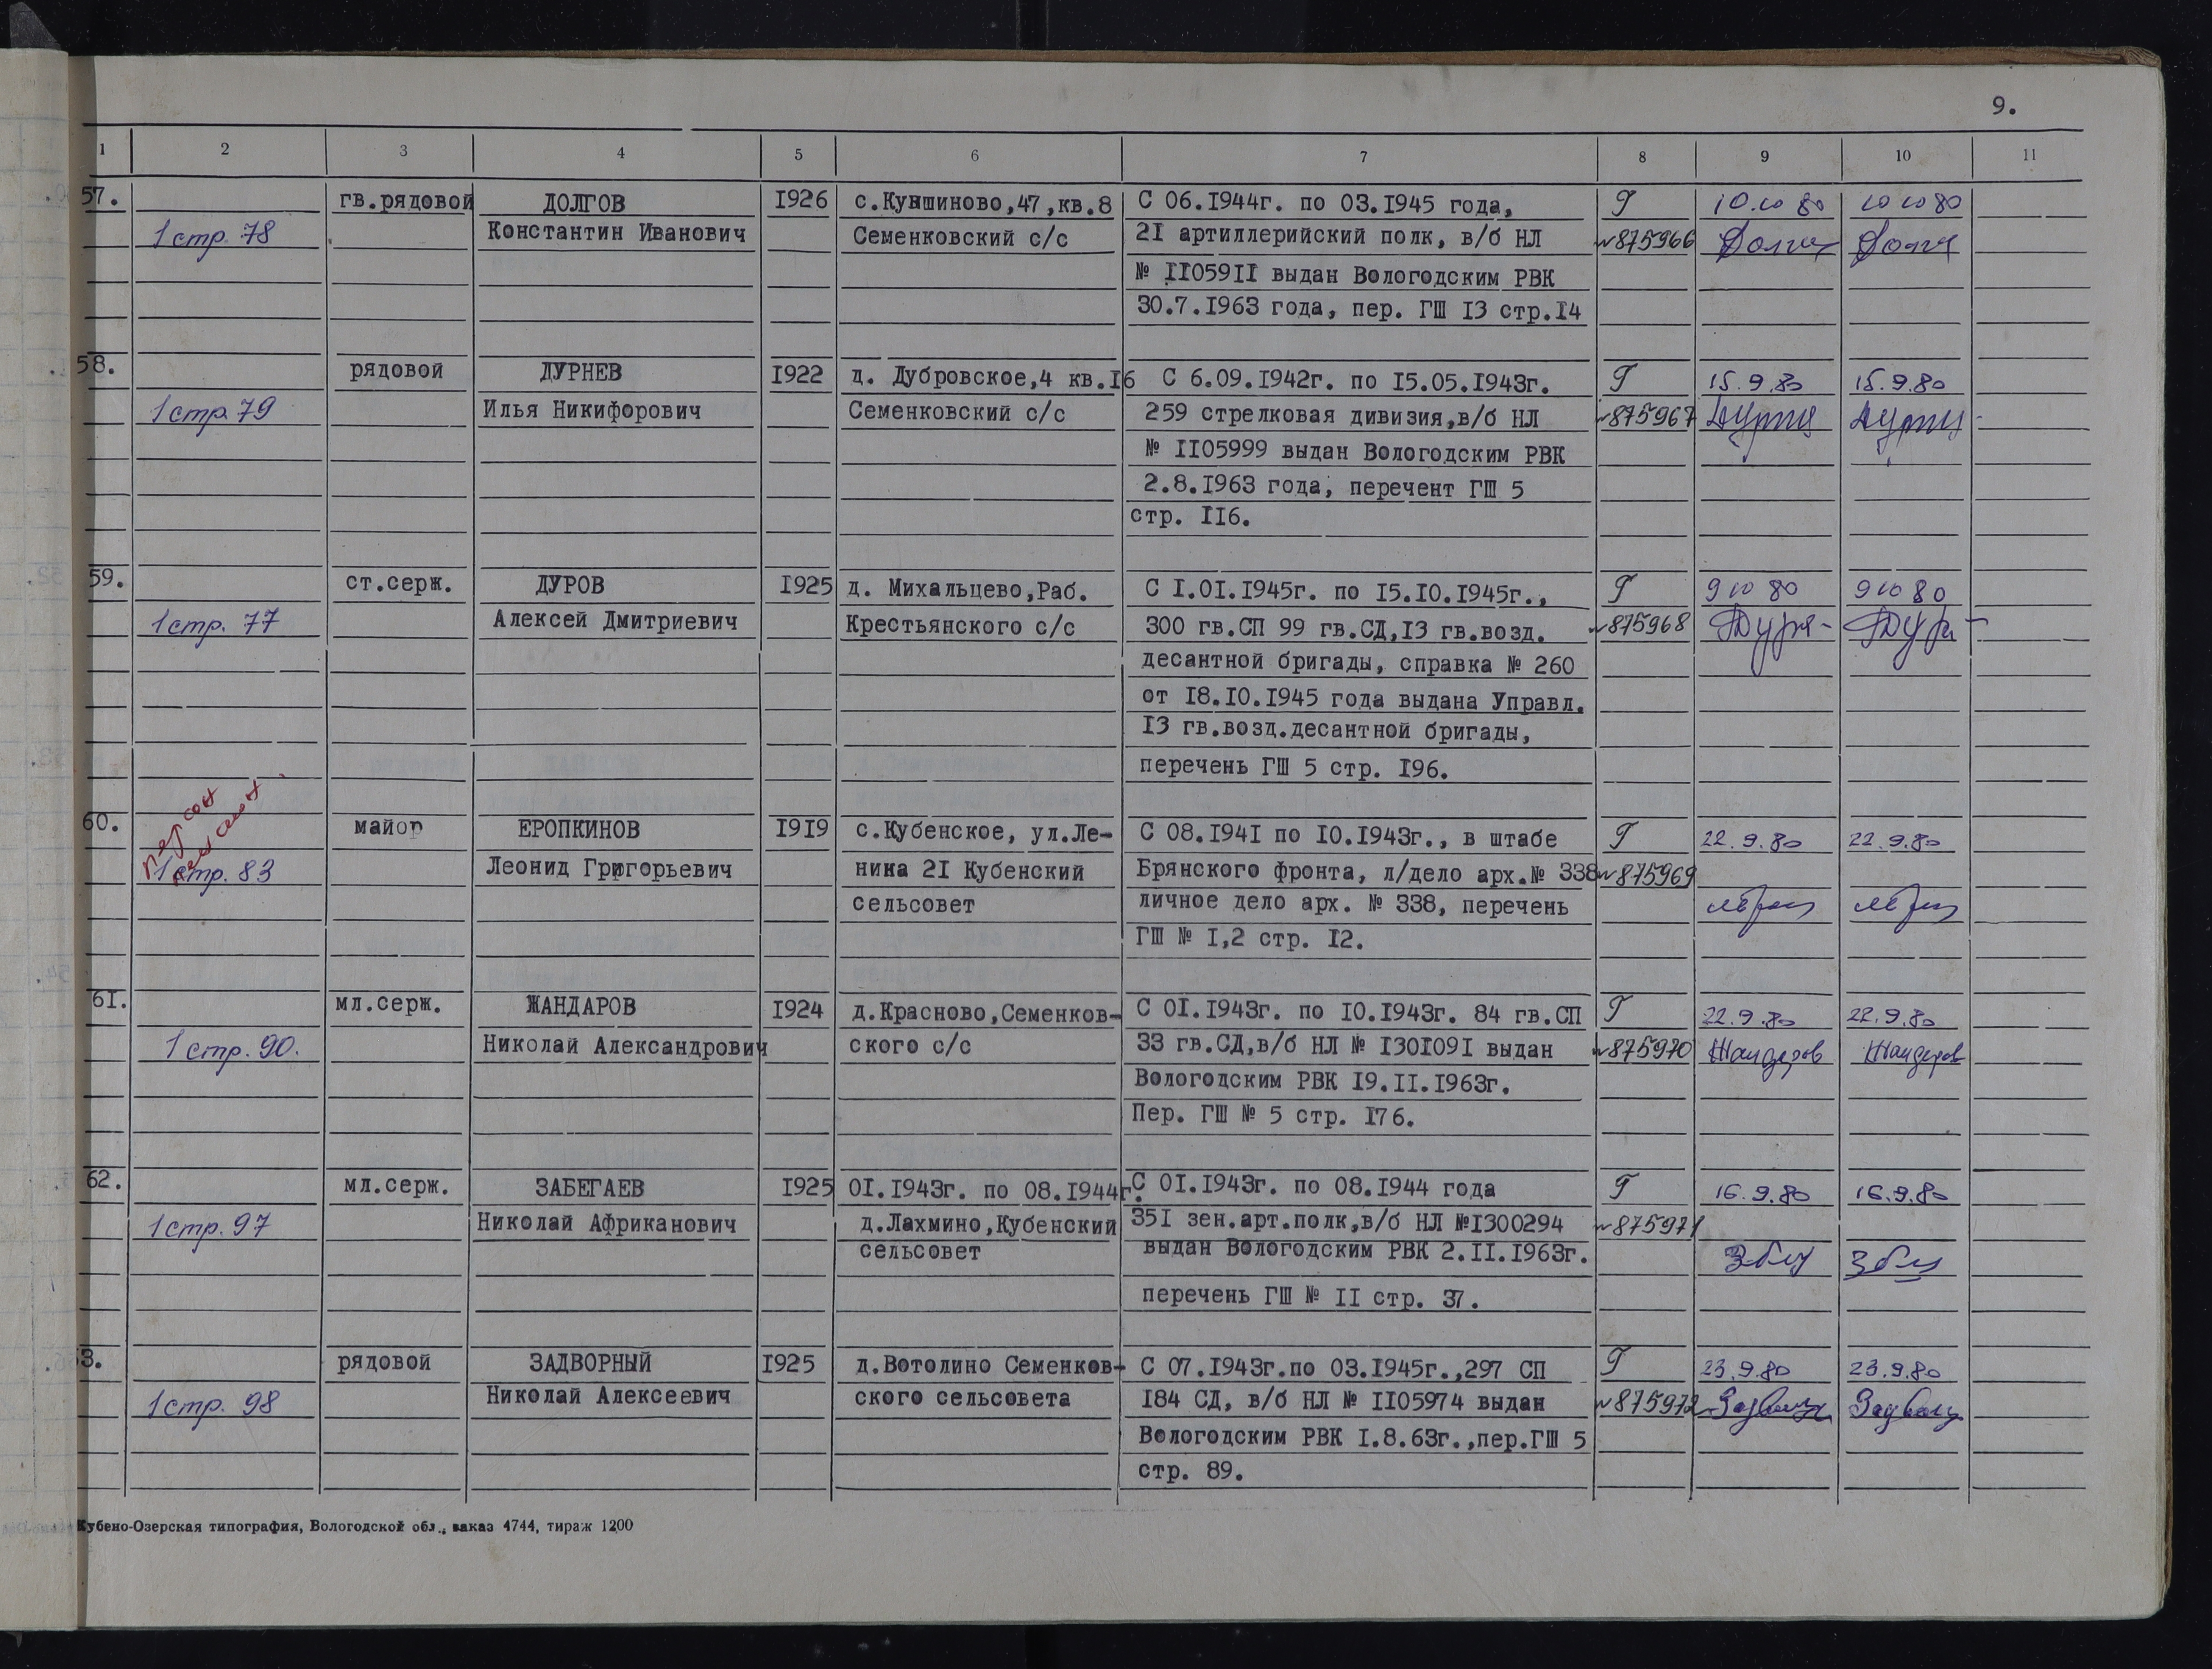 9.
1 2 3 4 5 6 7 8 9 10 11
57. гв.рядовой ДОЛГОВ 1926 с.Кувшиново,47,кв.8 С 06.1944г. по 03.1945 года, Г 10.10 80 10 10 80
1 стр. 78 Константин Иванович Семенковский с/с 21 артиллерийский полк, в/б НЛ №875966
№ 1105911 выдан Вологодским РВК
30.7.1963 года, пер. ГШ 13 стр.14
58. рядовой ДУРНЕВ 1922 д. Дубровское,4 кв.16 С 6.09.1942г. по 15.05.1943г. Г 15.9.80 15.9.80
1 стр. 79 Илья Никифорович Семенковский с/с 259 стрелковая дивизия,в/б НЛ №875967
№ 1105999 выдан Вологодским РВК
2.8.1963 года, перечент ГШ 5
стр. 116.
59. ст.серж. ДУРОВ 1925 д. Михальцево,Раб. С 1.01.1945г. по 15.10.1945г., Г 9 10 80 9 10 80
1 стр. 77 Алексей Дмитриевич Крестьянского с/с 300 гв.СП 99 гв.СД,13 гв.возд. №875968
десантной бригады, справка № 260
от 18.10.1945 года выдана Управл.
13 гв.возд.десантной бригады,
перечень ГШ 5 стр. 196.
60. майор ЕРОПКИНОВ 1919 с.Кубенское, ул.Ле- С 08.1941 по 10.1943г., в штабе Г 22.9.80 22.9.80
1 стр. 83 Леонид Григорьевич нина 21 Кубенский Брянского фронта, л/дело арх.№ 338 №875969
сельсовет личное дело арх. № 338, перечень
ГШ № 1,2 стр. 12.
61. мл.серж. ЖАНДАРОВ 1924 д.Красново,Семенков- С 01.1943г. по 10.1943г. 84 гв.СП Г 22.9.80 22.9.80
1 стр. 90. Николай Александрович ского с/с 33 гв.СД,в/б НЛ № 1301091 выдан №875970 Жандаров Жандаров
Вологодским РВК 19.11.1963г.
Пер. ГШ № 5 стр. 176.
62. мл.серж. ЗАБЕГАЕВ 1925 01.1943г. по 08.1944г. С 01.1943г. по 08.1944 года Г 16.9.80 16.9.80
1 стр. 97 Николай Африканович д.Лахмино,Кубенский 351 зен.арт.полк,в/б НЛ №1300294 №875971
сельсовет выдан Вологодским РВК 2.11.1963г.
перечень ГШ № 11 стр. 37.
3. рядовой ЗАДВОРНЫЙ 1925 д.Вотолино Семенков- С 07.1943г.по 03.1945г.,297 СП Г 23.9.80 23.9.80
1 стр. 98 Николай Алексеевич ского сельсовета 184 СД, в/б НЛ № 1105974 выдан №875972
Вологодским РВК 1.8.63г.,пер.ГШ 5
стр. 89.
Кубено-Озерская типография, Вологодской обл., заказ 4744, тираж 1200